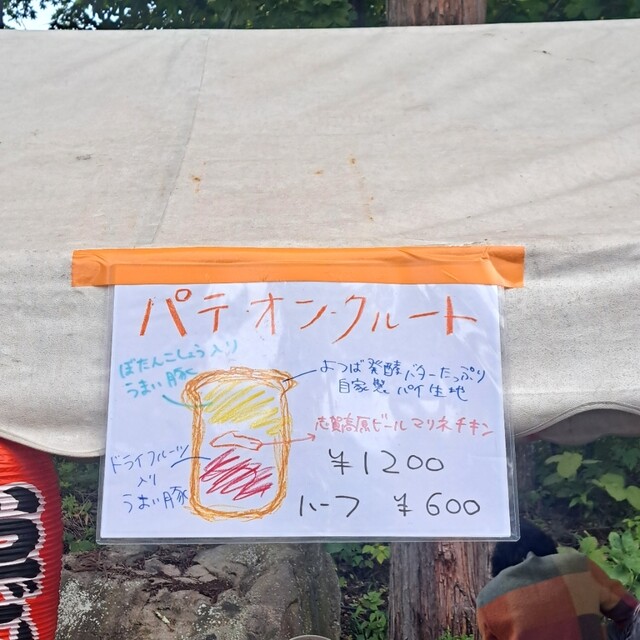 パテ・オン・クルート
ぼたんこしょう入り
うまい豚
よつば発酵バターたっぷり
自家製パイ生地
志賀高原ビールマリネチキン
ドライフルーツ
入り
うまい豚
¥1200
ハーフ ¥600